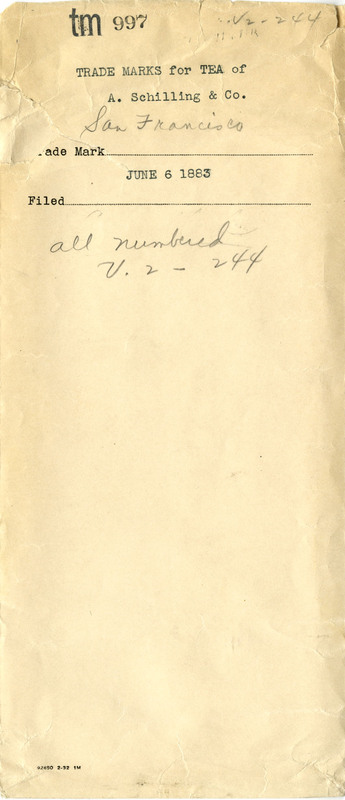 tm 997
V2-244
TRADE MARKS for TEA of
A. Schilling & Co.
San Francisco
ade Mark
JUNE 6 1883
Filed
all numbered
V. 2 - 244